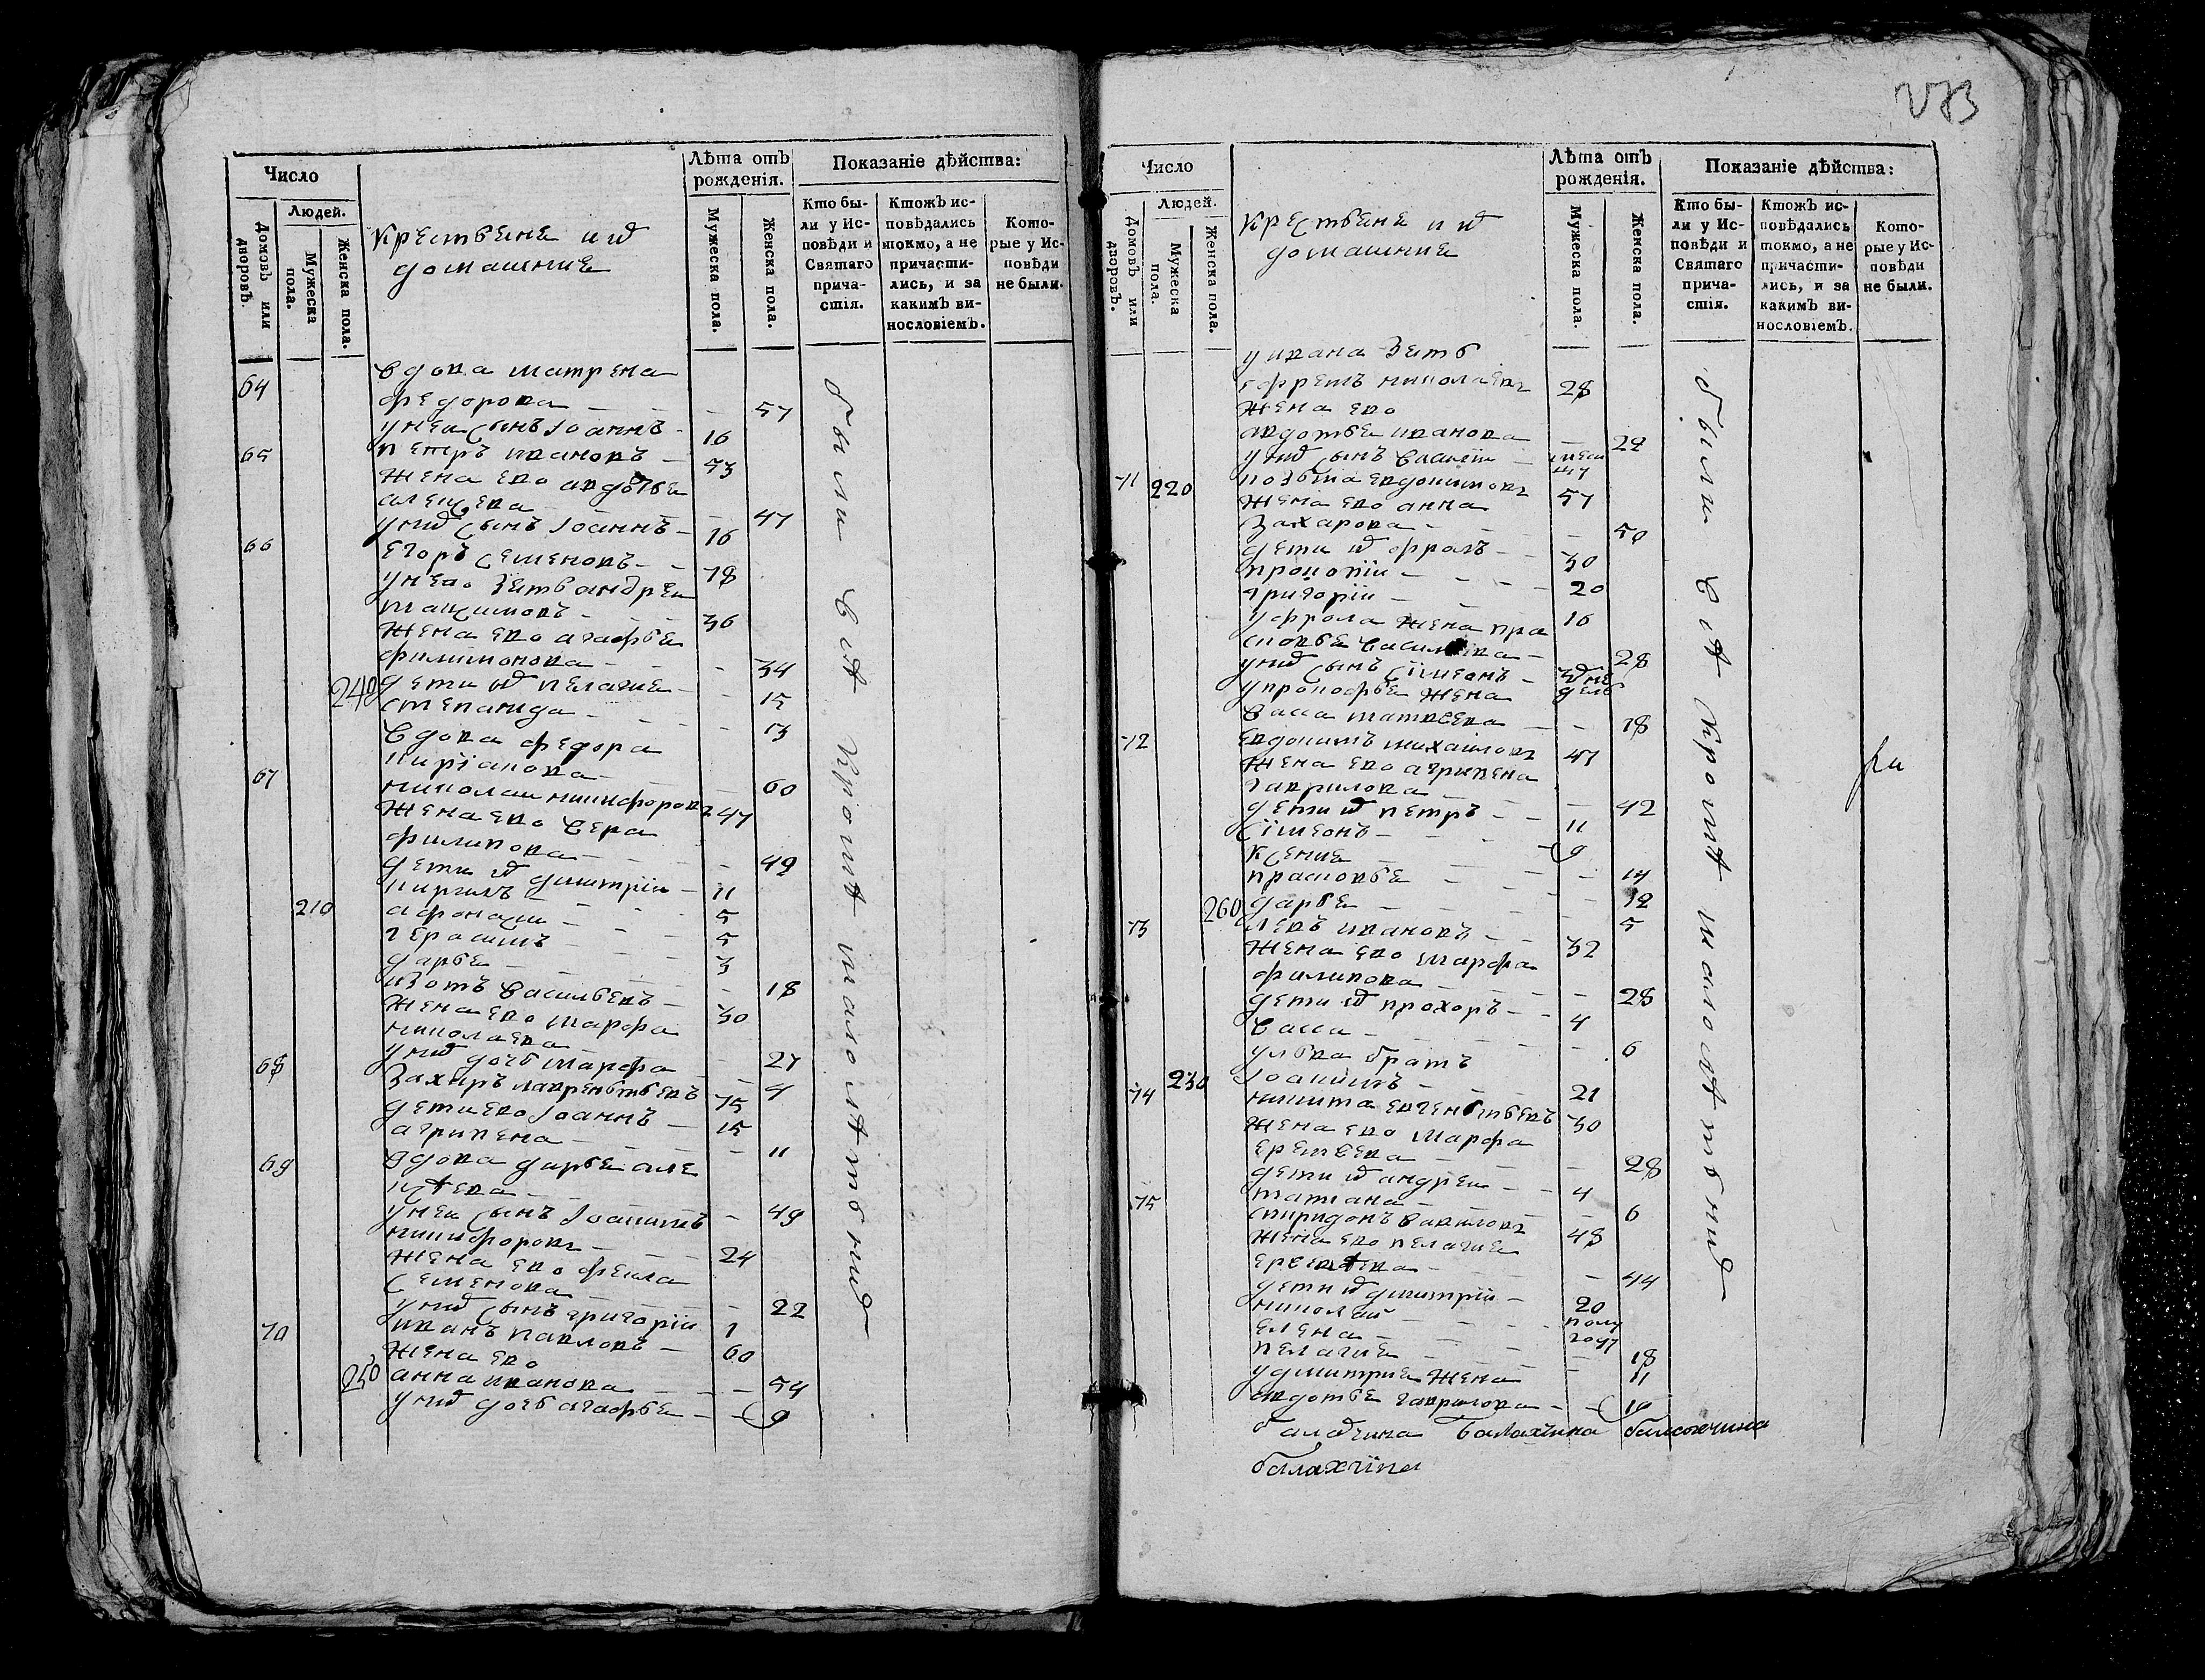 273
Число
Людей.
Домовъ или дворовъ.
Мужеска пола.
Женска пола.
Крестьяне и их
домашние
Лѣта отъ рожденія.
Мужеска пола.
Женска пола.
Показаніе дѣйства:
Кто были у Исповѣди и Святаго причастія.
Ктожъ исповѣдались токмо, а не причастились, и за какимъ винословіемъ.
Которые у Исповѣди не были.
64 вдова матрена
федорова 57
у неи сынъ Иоаннъ 16
65 петръ ивановъ 53
жена ево авдотья
алексеева 47
у них сынъ Иоаннъ 16
66 Егоръ семеновъ 78
у нево зять андреи
максимовъ 36
жена ево агафья
филимонова 34
240 дети их пелагия 15
степанида 13
вдова федора
кирьянова 60
67 николаи никифоровъ 47
жена ево вера
филипова 49
дети их димитрии 11
кирилъ 5
210 афонасии 5
герасимъ 3
дарья 18
изотъ васильевъ 30
жена ево марфа
николаева 27
у них дочь марфа 4
68 Захаръ лаврентьевъ 75
дети ево Иоаннъ 15
агрипена 11
69 вдова дарья але
ксеева 49
у неи сынъ Иоакимъ
никифоровъ 24
жена ево фекла
семенова 22
у них сынъ григории 1
70 иванъ павловъ 60
жена ево
250 анна иванова 54
у них дочь агафья 9
были вси кроме малолетних
Число
Людей.
Домовъ или дворовъ.
Мужеска пола.
Женска пола.
Крестьяне и их
домашние
Лѣта отъ рожденія.
Мужеска пола.
Женска пола.
Показаніе дѣйства:
Кто были у Исповѣди и Святаго причастія.
Ктожъ исповѣдались токмо, а не причастились, и за какимъ винословіемъ.
Которые у Исповѣди не были.
у ивана зять
ефремъ николаевъ 28
жена ево
авдотья иванова 22
у них сынъ василии
71 220 козьма евдокимовъ 57
жена ево анна
захарова 50
дети их фролъ 30
прокопии 20
григории 16
у фрола жена пра
сковья васильева 28
у них сынъ симеонъ
у прокофья жена
васса матвеева 18
72 евдокимъ михаиловъ 47
жена ево агрипена
гаврилова 42
дети их петръ 11
симеонъ 9
ксения 14
прасковья 12
260 дарья 5
73 левъ ивановъ 32
жена ево марфа
филипова 28
дети их прохоръ 4
васса 6
у льва братъ
230 Иоакимъ 21
74 никита евгеньтьевъ 30
жена ево марфа
еремеева 28
дети их андреи 4
татиана 6
75 спиридонъ вавиловъ 48
жена ево пелагия
44
дети их димитрии 20
николаи полу году
елена 18
пелагия 11
у димитрия жена
авдотья гаврилова 19
были вси кроме малолетних
балахчина балахчина
балахчина